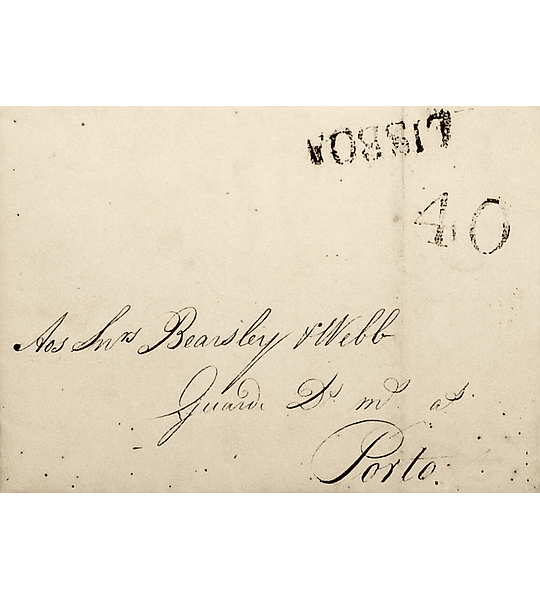 LISBOA
40
Aos Snrs Bearsley & Webb
Guarde Ds ms as
Porto.